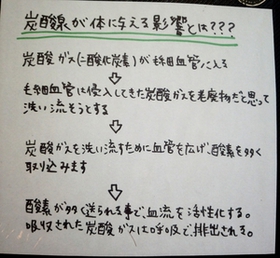 炭酸泉が体に与える影響とは???
炭酸ガス(二酸化炭素)が毛細血管に入る
毛細血管は侵入してきた炭酸ガスを老廃物だと思って
洗い流そうとする
炭酸ガスを洗い流すために血管を広げ、酸素を多く
取り込みます
酸素が多く送られる事で、血流を活性化する。
吸収された炭酸ガスは呼吸で、排出される。